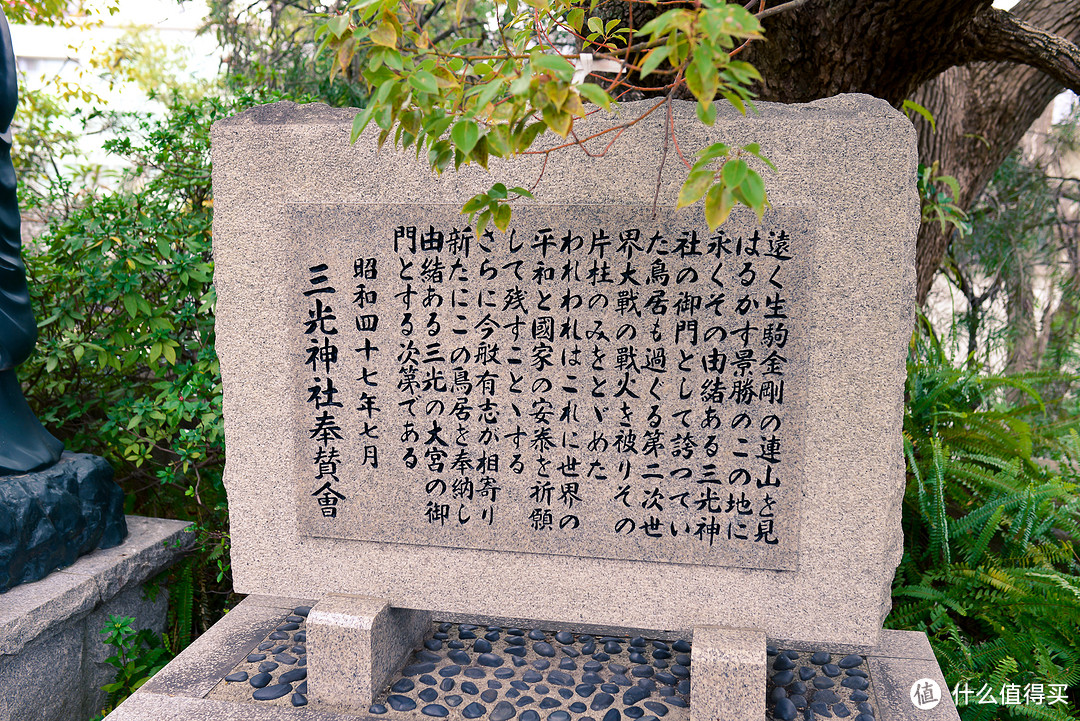 遠く生駒金剛の連山を見
はるかす景勝のこの地に
永くその由緒ある三光神
社の御門として誇つてい
た鳥居も過ぐる第二次世
界大戦の戰火を被りその
片柱のみをとゞめた
われわれはこれに世界の
平和と國家の安泰を祈願
して残すこととゝする
さらに今般有志が相寄り
新たにこの鳥居を奉納し
由緒ある三光の大宮の御
門とする次第である
昭和四十七年七月
三光神社奉賛會
值 什么值得买